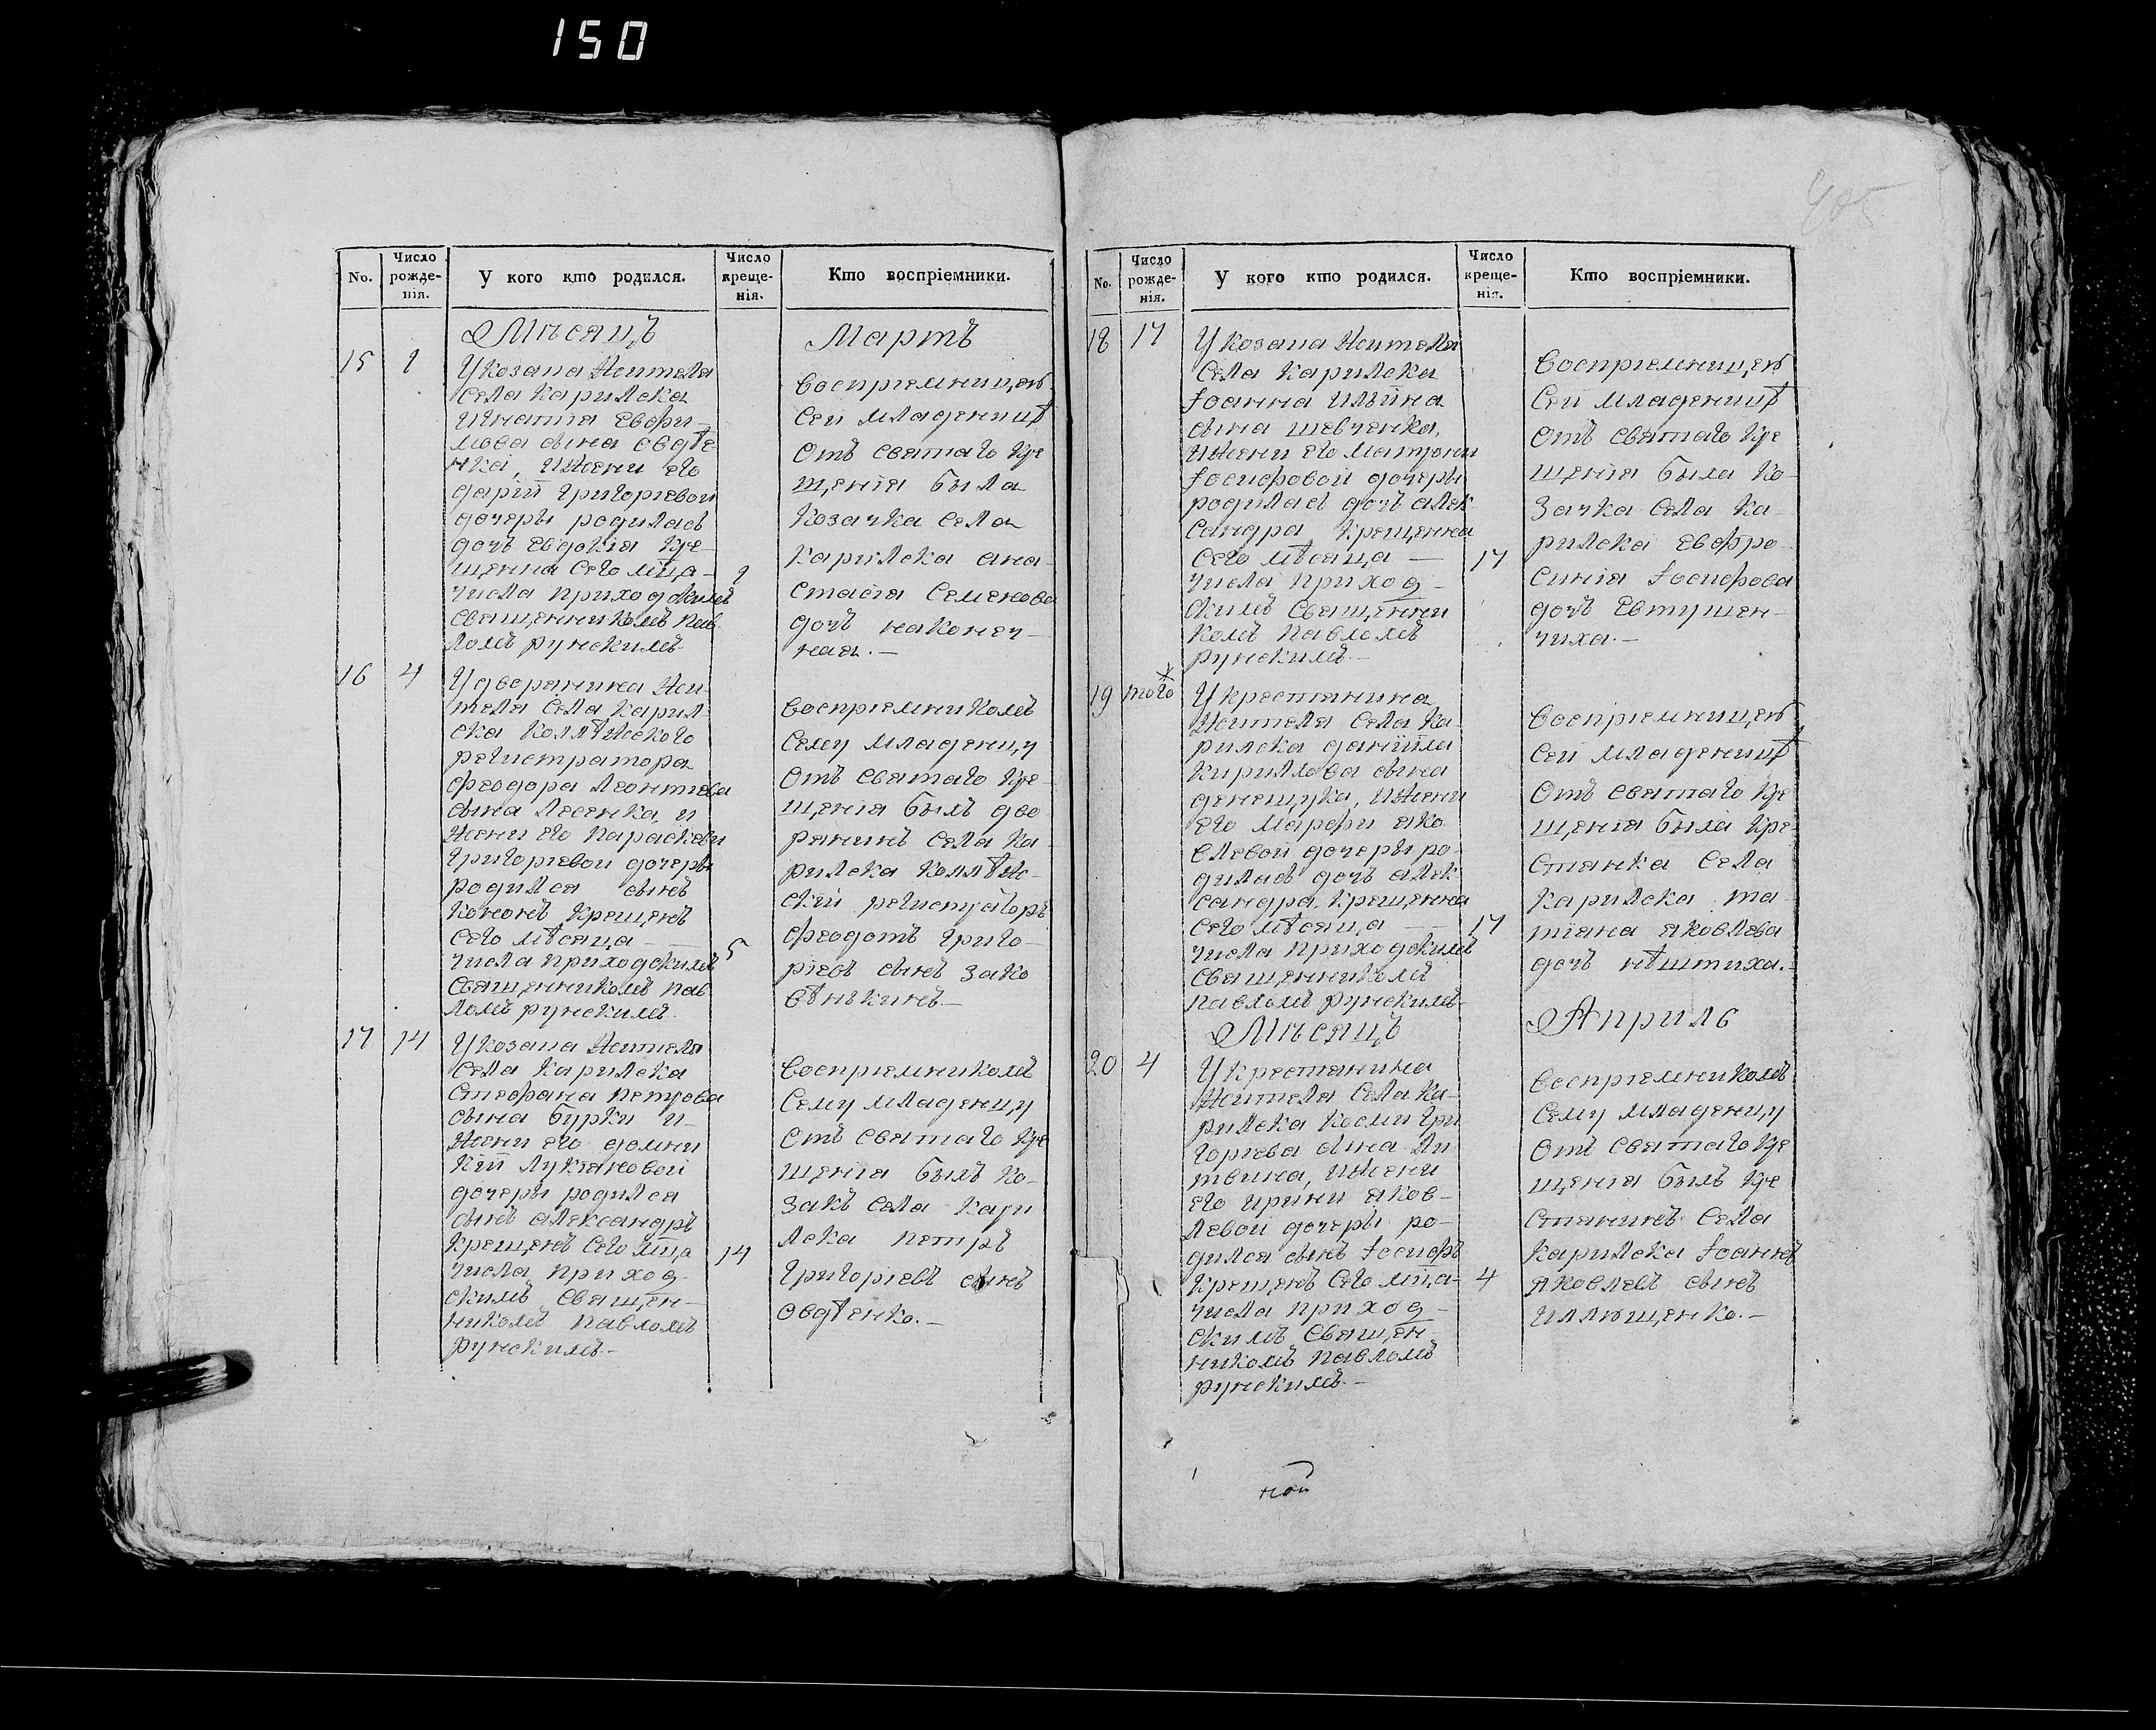 150
405
No.
Число рожде-нія.
У кого кто родился.
Число креще-нія.
Кто воспріемники.
Мѣсяцъ
Мартъ
15
1
У козака жителя
села Карилска
Игнатія Евфи-
мова сына Овдѣе
нка, и жены его
Даріи Григоріевой
дочеры родилась
дочь Евдокія кре-
щенна сего мца-
1
числа приходскимъ
священникомъ Пав
ломъ Рунскимъ
воспріемницею
сей младеницѣ
отъ святаго кре
щенія была
козачка села
Карилска Ана-
стасія Семенова
дочь наконеч-
ная.-
16
4
У дворянина жи-
теля села Карил-
ска коллѣжского
регистратора
Феодора Леонтіева
сына Лесенка, и
жены его Параскевы
Григоріевой дочеры
родился сынъ
Кононъ крещенъ
сего мѣсяца -
5
числа приходскимъ
священникомъ Пав
ломъ Рунскимъ
воспріемникомъ
сему младенцу
отъ святаго кре-
щенія былъ дво
рянинъ села Ка-
рилска коллѣж-
скій регистраторъ
Феодотъ Григо-
ріевъ сынъ Зако
вѣнкинъ-
17
14
У козака жителя
села Карилска
Стефана Петрова
сына Бурки и-
жены его Домни
кіи Лукіяновой
дочеры родился
сынъ Александръ
крещенъ сего мца
14
числа приход-
скимъ священ-
никомъ Павломъ
Рунскимъ-
воспріемникомъ
сему младенцу
отъ святаго кре
щенія былъ ко-
закъ села Кари
лска Петръ
Григоріевъ сынъ
Овдѣенко.-
No.
Число рожде-нія.
У кого кто родился.
Число креще-нія.
Кто воспріемники.
18
17
У козака жителя
села Карилска
Іоанна Ильина
сына Шевченка,
и жены его Матроны
Іосифовой дочеры
родилась дочь Алек-
сандра крещенна
сего мѣсяца -
17
числа приход-
скимъ священни
комъ Павломъ
Рунскимъ.-
воспріемницею
сей младеницѣ
отъ святаго кре
щенія была ко-
зачка села Ка-
рилска Евфро-
синія Іосифова
дочь Евтушен-
чиха.-
19
того
У крестянина
жителя села Ка-
рилска Даніила
Кириллова сына
Денещука, и жены
его Марфы Яко
влевой дочеры ро-
дилась дочь Алек
сандра, крещенна
сего мѣсяца -
17
числа приходскимъ
священникомъ
Павломъ Рунскимъ-
воспріемницею
сей младеницѣ
отъ святаго кре
щенія была кре-
стянка села
Карилска Та-
тіана Яковлева
дочь Нѣштиха.-
Мѣсяцъ
Априль
20
4
У крестянина
жителя села Ка-
рилска Космы Гри
горіева сына Ли
твина, и жены
его Ирины Яков-
левой дочеры ро-
дился сынъ Іосифъ
крещенъ сего мца-
4
числа приход-
скимъ священ
никомъ Павломъ
Рунскимъ.-
воспріемникомъ
сему младенцу
отъ святаго кре
щенія былъ кре
стянинъ села
Карилска Іоаннъ
Яковлевъ сынъ
Иллющенко.-
ной